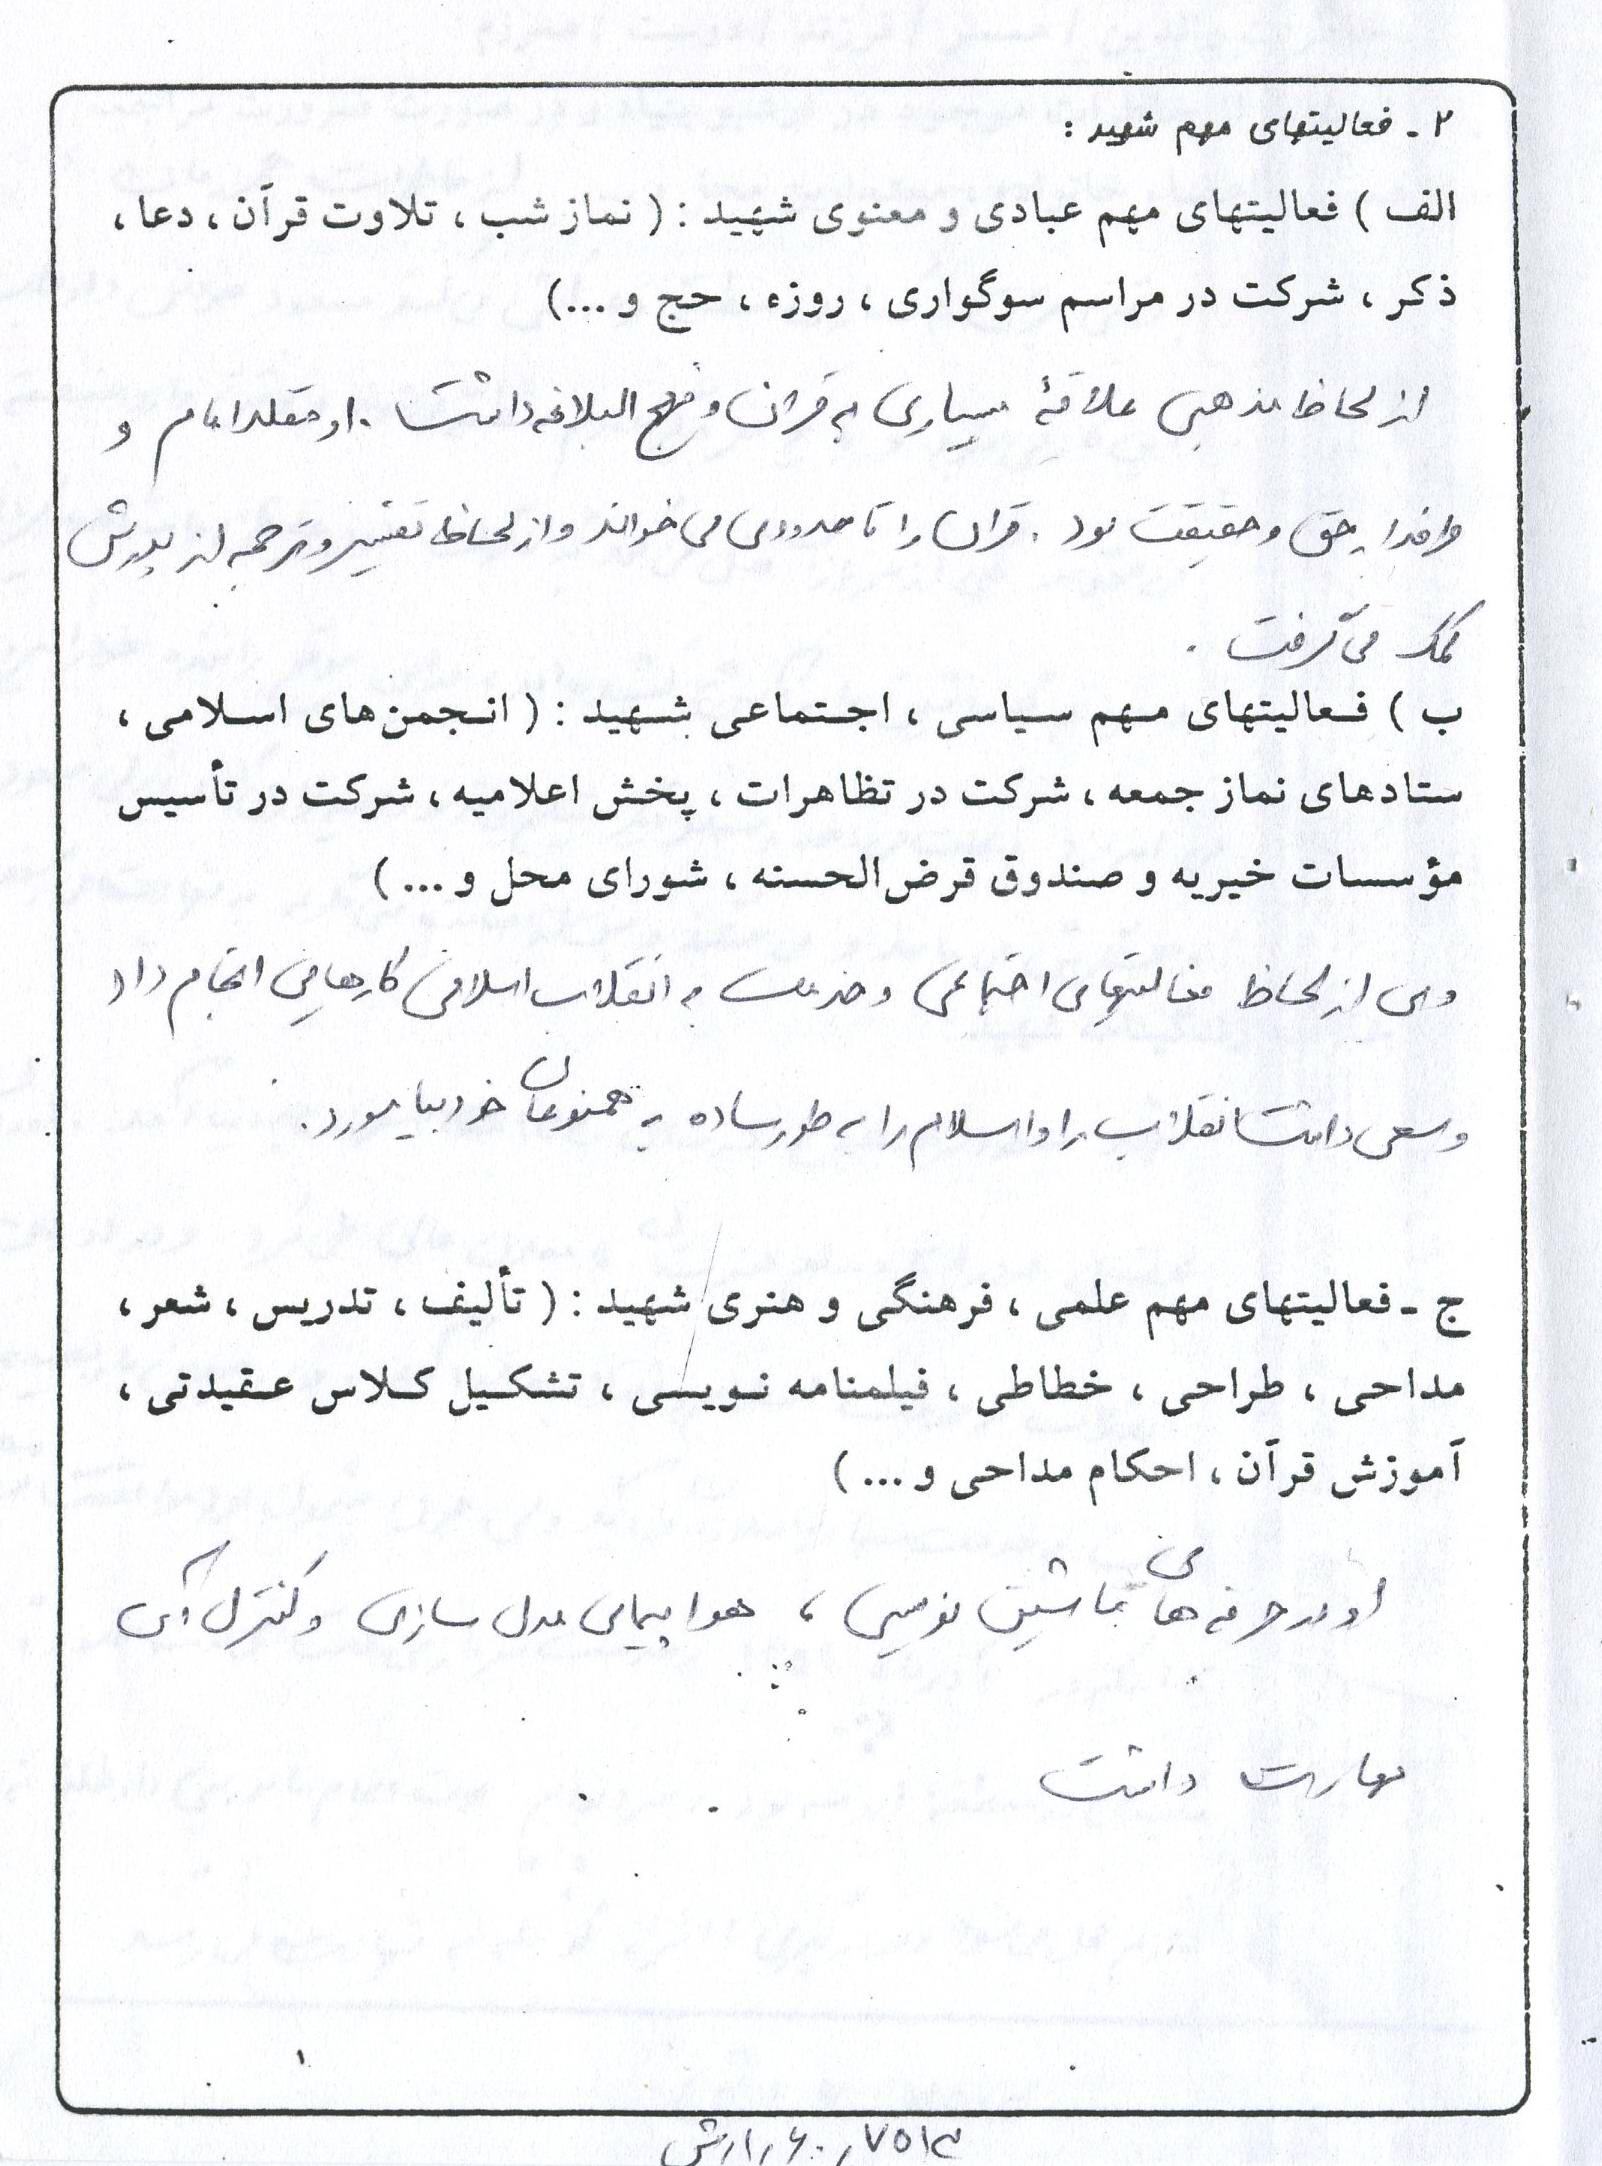 ۲ ـ فعالیتهای مهم شهید :
الف ) فعالیتهای مهم عبادی و معنوی شهید : ( نماز شب ، تلاوت قرآن ، دعا ،
ذکر ، شرکت در مراسم سوگواری ، روزه ، حج و ...)
از لحاظ مذهبی علاقهٔ بسیاری به قرآن و نهج البلاغه داشت . او مقلد امام و
حق و حقیقت بود . قرآن را تا حدودی می خواند و از لحاظ تفسیر و ترجمه از پدرش
کمک می گرفت .
ب ) فعالیتهای مهم سیاسی ، اجتماعی شهید : ( انجمن های اسلامی ،
ستادهای نماز جمعه ، شرکت در تظاهرات ، پخش اعلامیه ، شرکت در تأسیس
مؤسسات خیریه و صندوق قرض الحسنه ، شورای محل و ... )
وی از لحاظ فعالیتهای اجتماعی و خدمت به انقلاب اسلامی کارهایی انجام داد
و سعی داشت انقلاب را و اسلام را به طور ساده به همنوعان خود بیاموزد .
ج ـ فعالیتهای مهم علمی ، فرهنگی و هنری شهید : ( تألیف ، تدریس ، شعر ،
مداحی ، طراحی ، خطاطی ، فیلمنامه نویسی ، تشکیل کلاس عقیدتی ،
آموزش قرآن ، احکام مداحی و ... )
او در حرفه هایی ماشین نویسی ، هواپیمای مدل سازی و کنترل آن
مهارت داشت